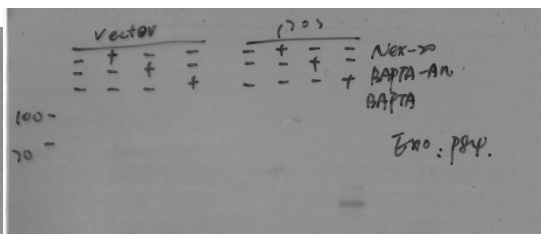 Vector
- + - - - + - - Nex-20
- - + - - - + - BAPTA-AM
- - - + - - - + BAPTA
100-
70 -
Exo: p84.